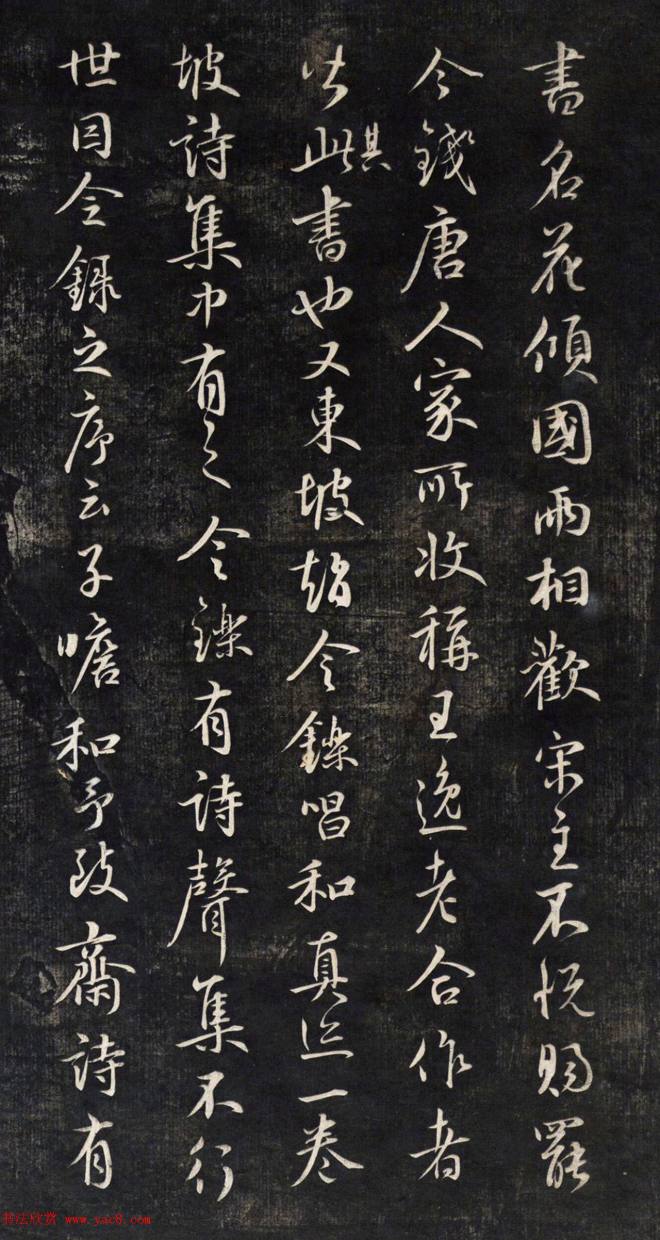 書名花傾國兩相歡宋主不悅賜罷
今錢唐人家所收稱王逸老合作者
皆此其書也又東坡趙令鑠唱和真迹一卷
坡詩集中有之令鑠有詩聲集不行
世因今錄之序云子瞻和予致齋詩有
书法欣赏 www.yac8.com